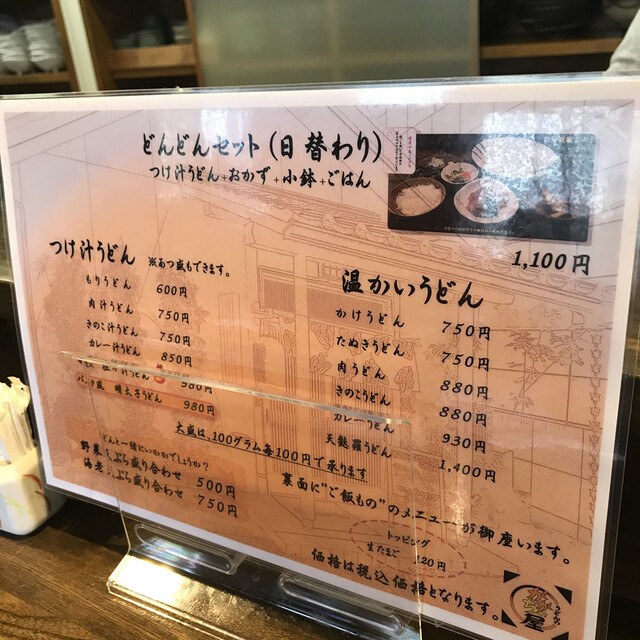 どんどんセット(日替わり)
つけ汁うどん+おかず+小鉢+ごはん
1,100円
つけ汁うどん ※あつ盛もできます。
もりうどん 600円
肉汁うどん 750円
きのこ汁うどん 750円
カレー汁うどん 850円
汁うどん 980円
明太子うどん 980円
温かいうどん
かけうどん 750円
たぬきうどん 750円
肉うどん 880円
きのこうどん 880円
カレーうどん 930円
天麩羅うどん 1,400円
大盛は、100グラム毎100円で承ります
どんと一緒にいかがでしょうか?
野菜天ぷら盛り合わせ 500円
海老天ぷら盛り合わせ 750円
裏面に"ご飯もの"のメニューが御座います。
トッピング
生たまご 120円
価格は税込価格となります。
屋